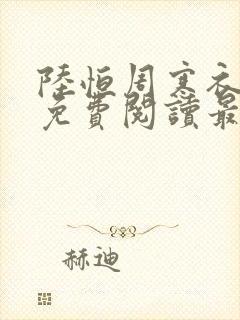 陸恒周寒衣
免費閱讀最
赫迪